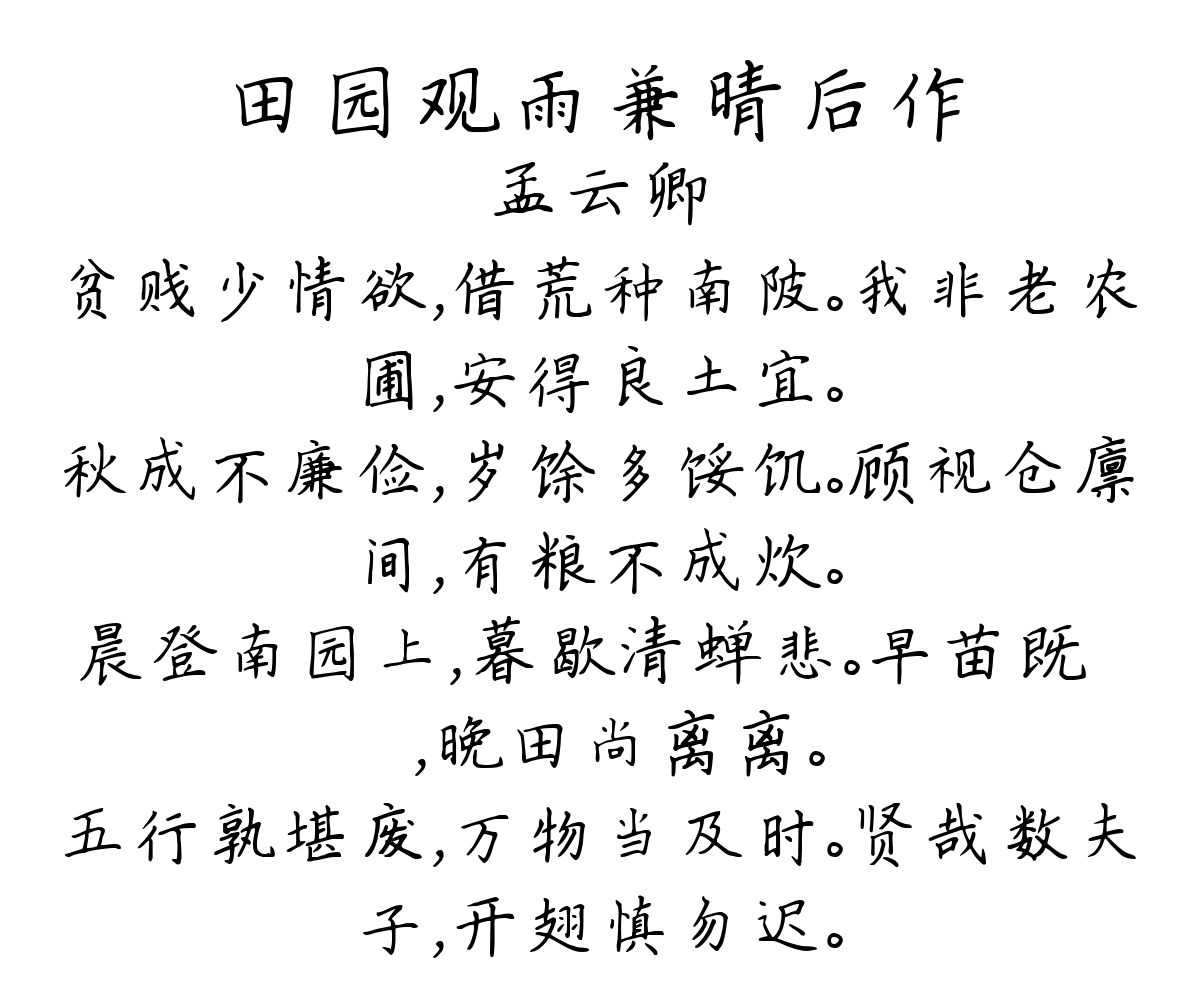 田园观雨兼晴后作
孟云卿
贫贱少情欲,借荒种南陂。我非老农
圃,安得良土宜。
秋成不廉俭,岁馀多馁饥。顾视仓廪
间,有粮不成炊。
晨登南园上,暮歇清蝉悲。早苗既
,晚田尚离离。
五行孰堪废,万物当及时。贤哉数夫
子,开翅慎勿迟。